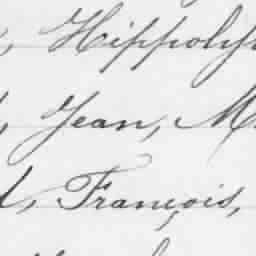 Hippolyt
Jean, M
t, François,